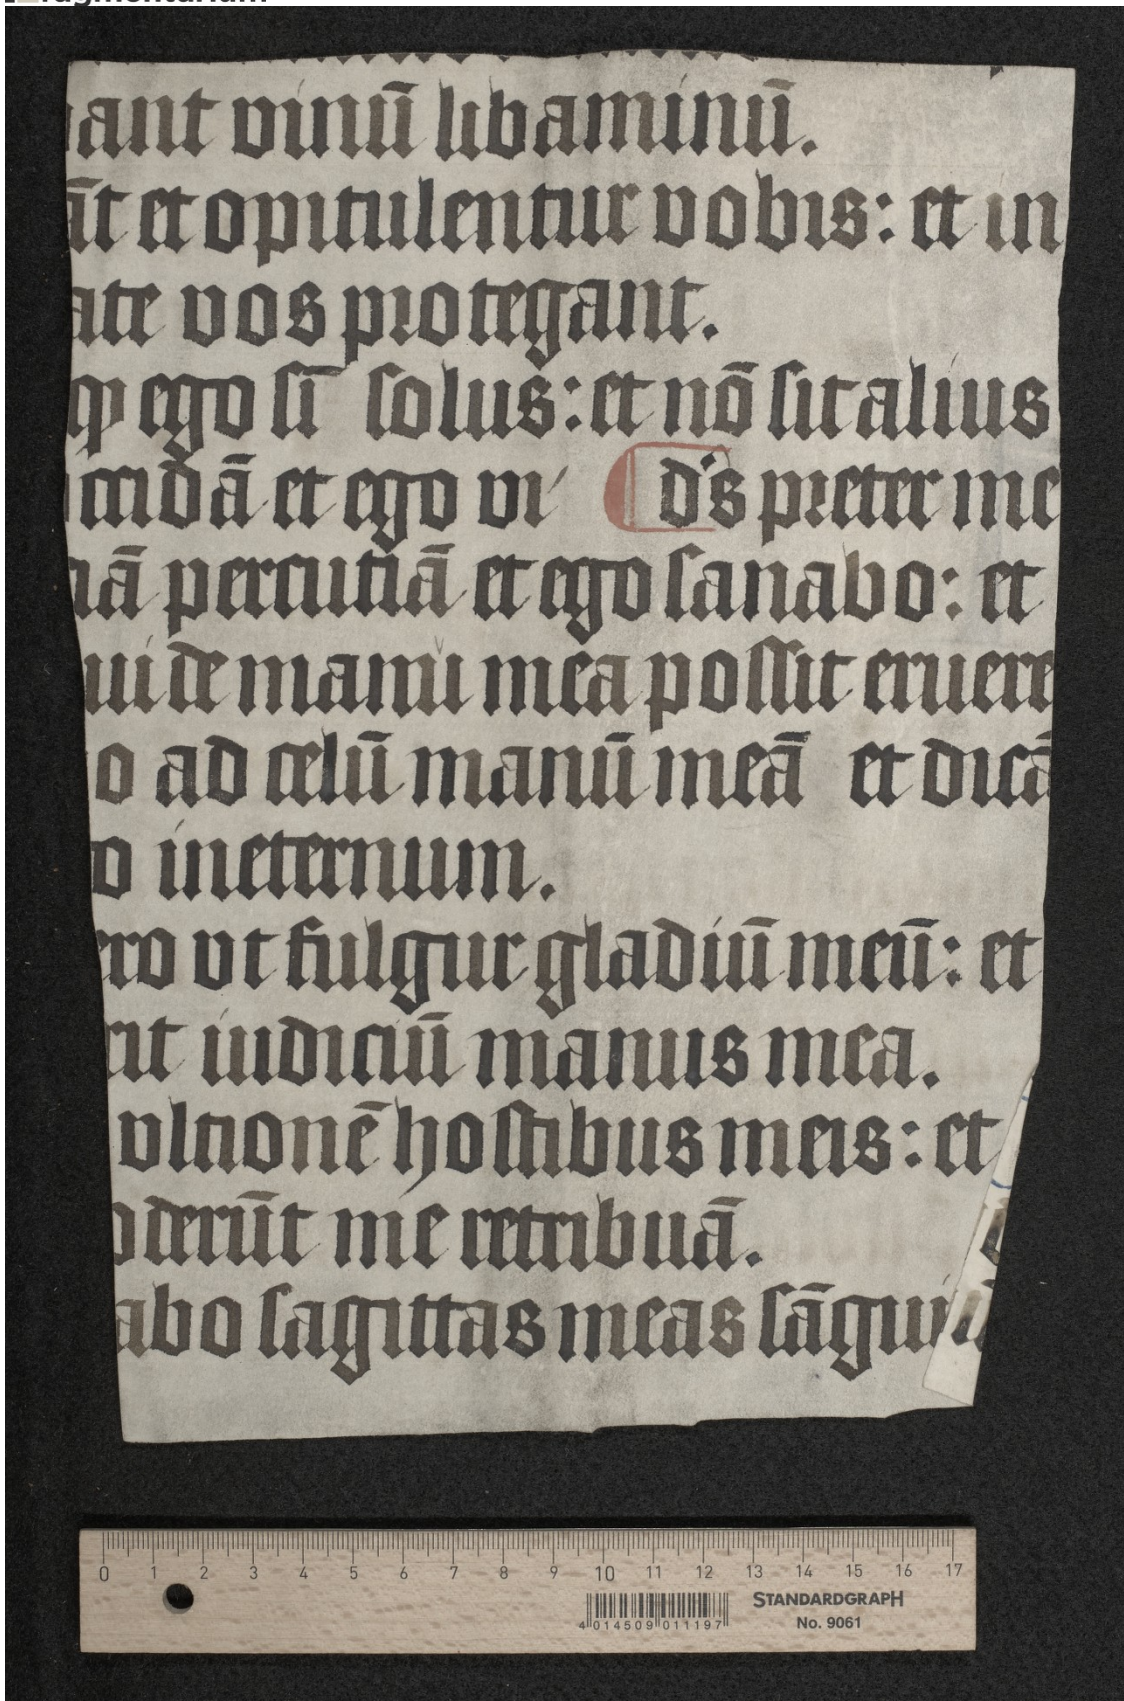 ant vinū libaminū.
āt et opitulentur vobis: et in
ate vos protegant.
ꝙ ego sī solus: et nō sit alius
cidā et ego vi d's preter me
nā percutiā et ego sanabo: et
ui de manu mea possit eruere
o ad celū manū meā et dicā
o in eternum.
ero vt fulgur gladiū meū: et
rit iudiciū manus mea.
vltionē hostibus meis: et
oderūt me retribuā.
abo sagittas meas sāgui
0 1 2 3 4 5 6 7 8 9 10 11 12 13 14 15 16 17
4 014509 011197
STANDARDGRAPH
No. 9061